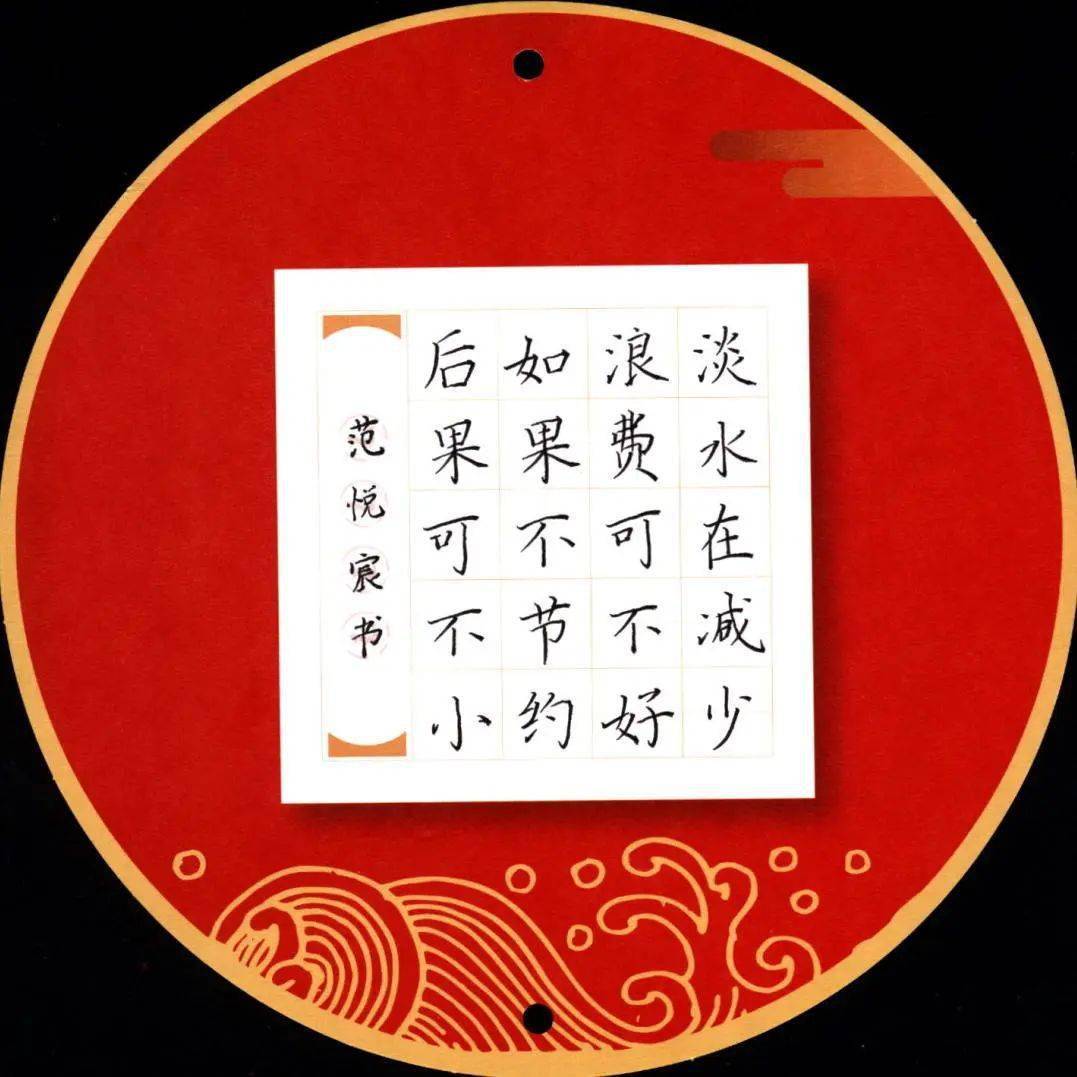 淡水在减少
浪费可不好
如果不节约
后果可不小
范悦宸书